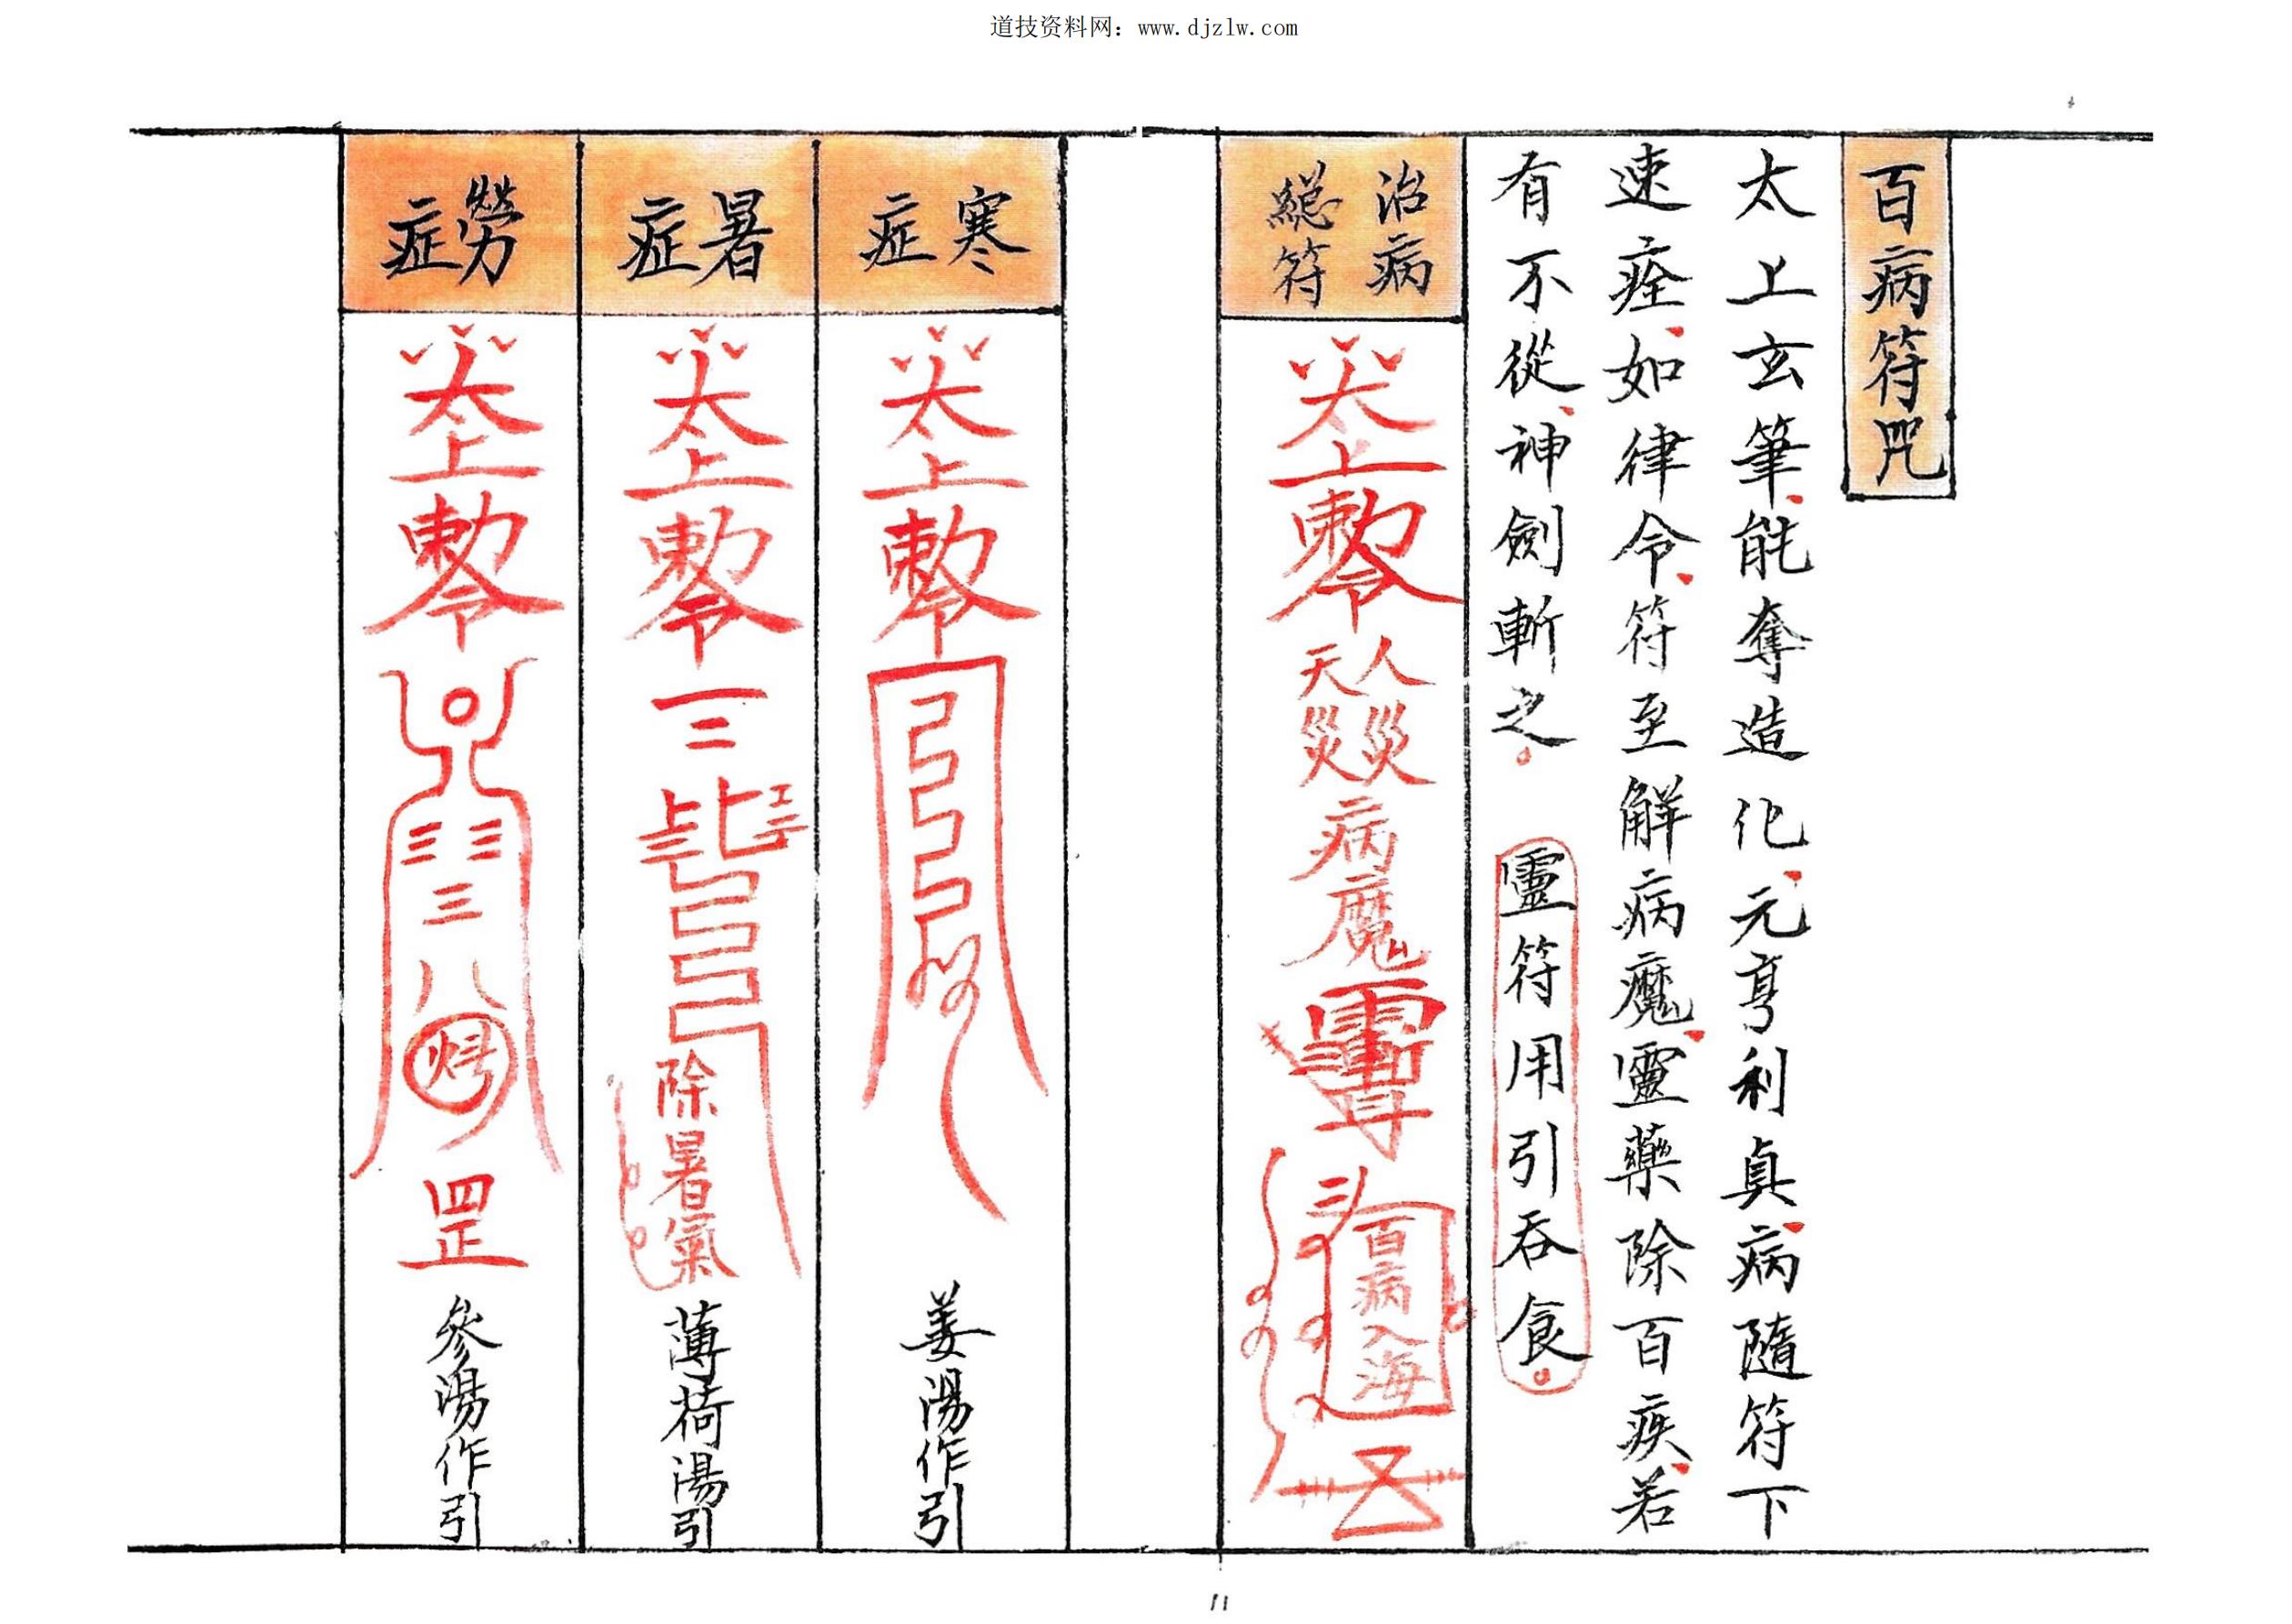 道技资料网：www.djzlw.com
百病符咒
太上玄筆能奪造化元亨利貞病隨符下
速痊如律令符至解病魔靈藥除百疾若
有不從神劍斬之
靈符用引吞食
治病
總符
太上敕令
人災
天災
病魔
百病入海
寒症
太上敕令
姜湯作引
暑症
太上敕令
除暑氣
薄荷湯引
勞症
太上敕令
罡
參湯作引
11